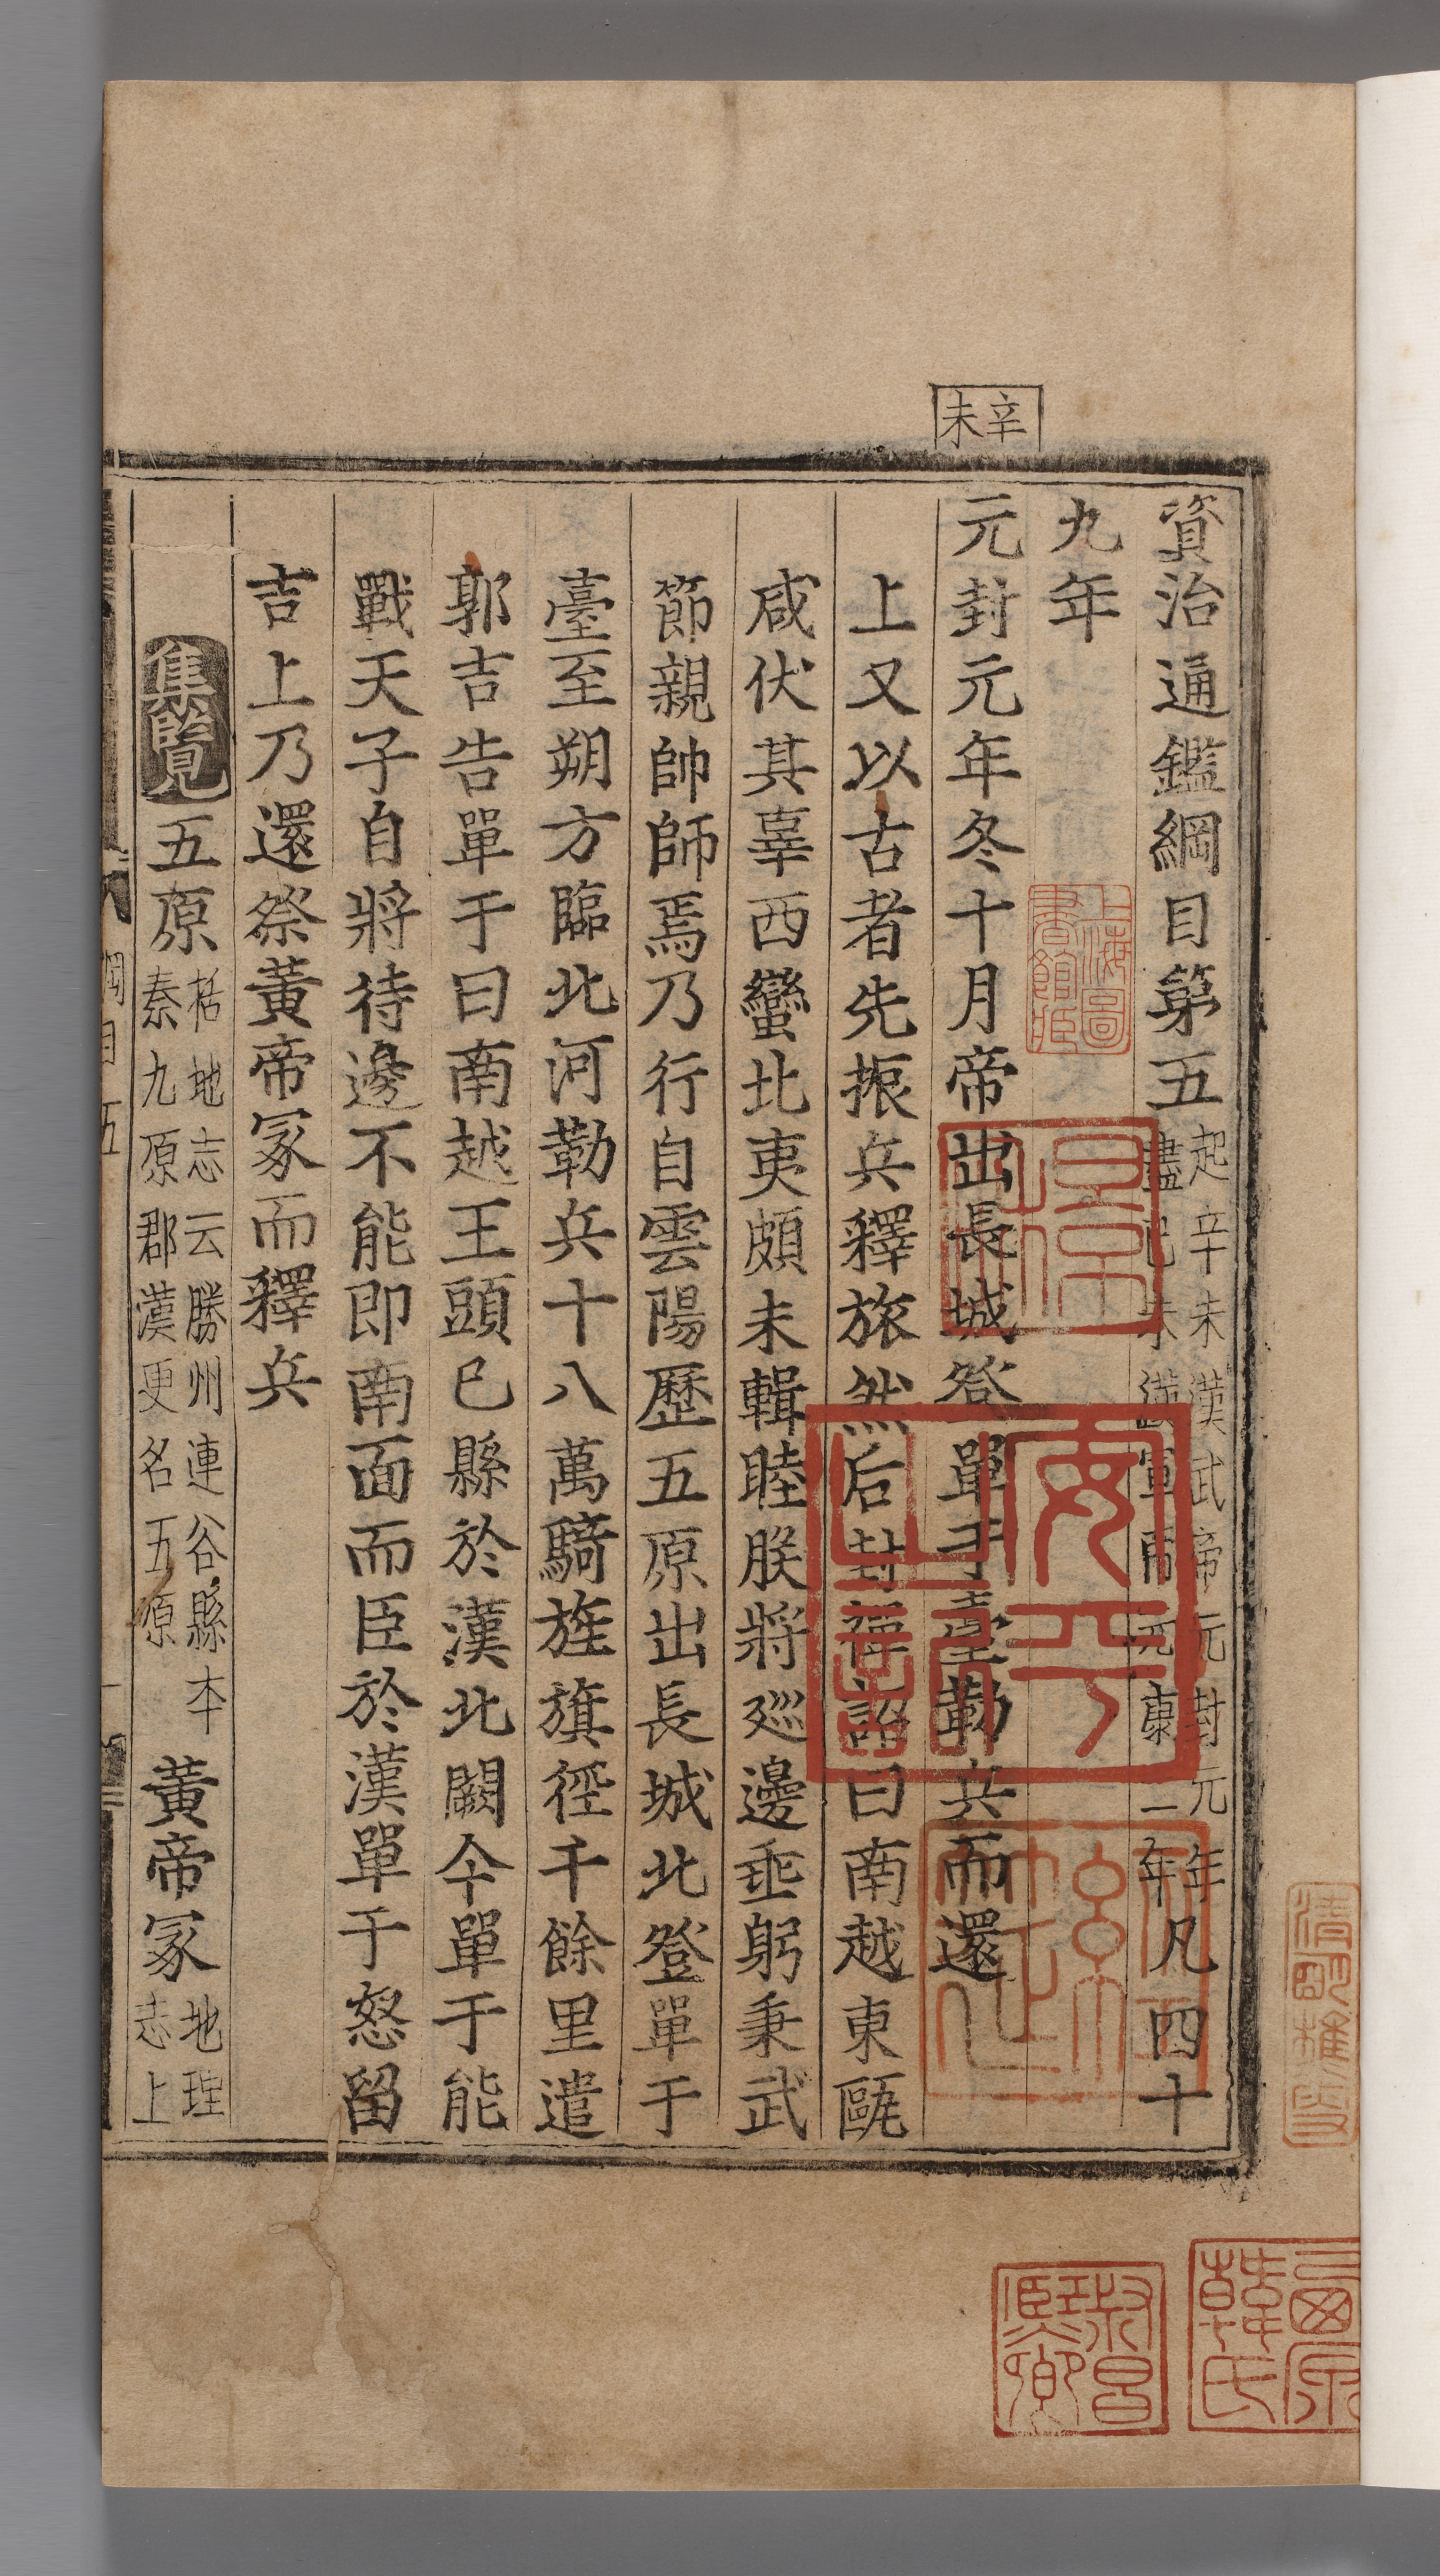 資治通鑑綱目第五起辛未漢武帝元封元年盡己未漢宣帝元康二年凡四十
九年
辛未
元封元年冬十月帝出長城登單于臺勒兵而還
上又以古者先振兵釋旅然后封禪詔曰南越東甌
咸伏其辜西蠻北夷頗未輯睦朕將廵邊垂躬秉武
節親帥師焉乃行自雲陽歷五原出長城北登單于
臺至朔方臨北河勒兵十八萬騎旌旗徑千餘里遣
郭吉告單于曰南越王頭已縣於漢北闕今單于能
戰天子自將待邊不能即南面而臣於漢單于怒留
吉上乃還祭黃帝冢而釋兵
集覽五原括地志云勝州連谷縣本秦九原郡漢更名五原黃帝冢地理志上
綱目五
上海圖書館藏
安平